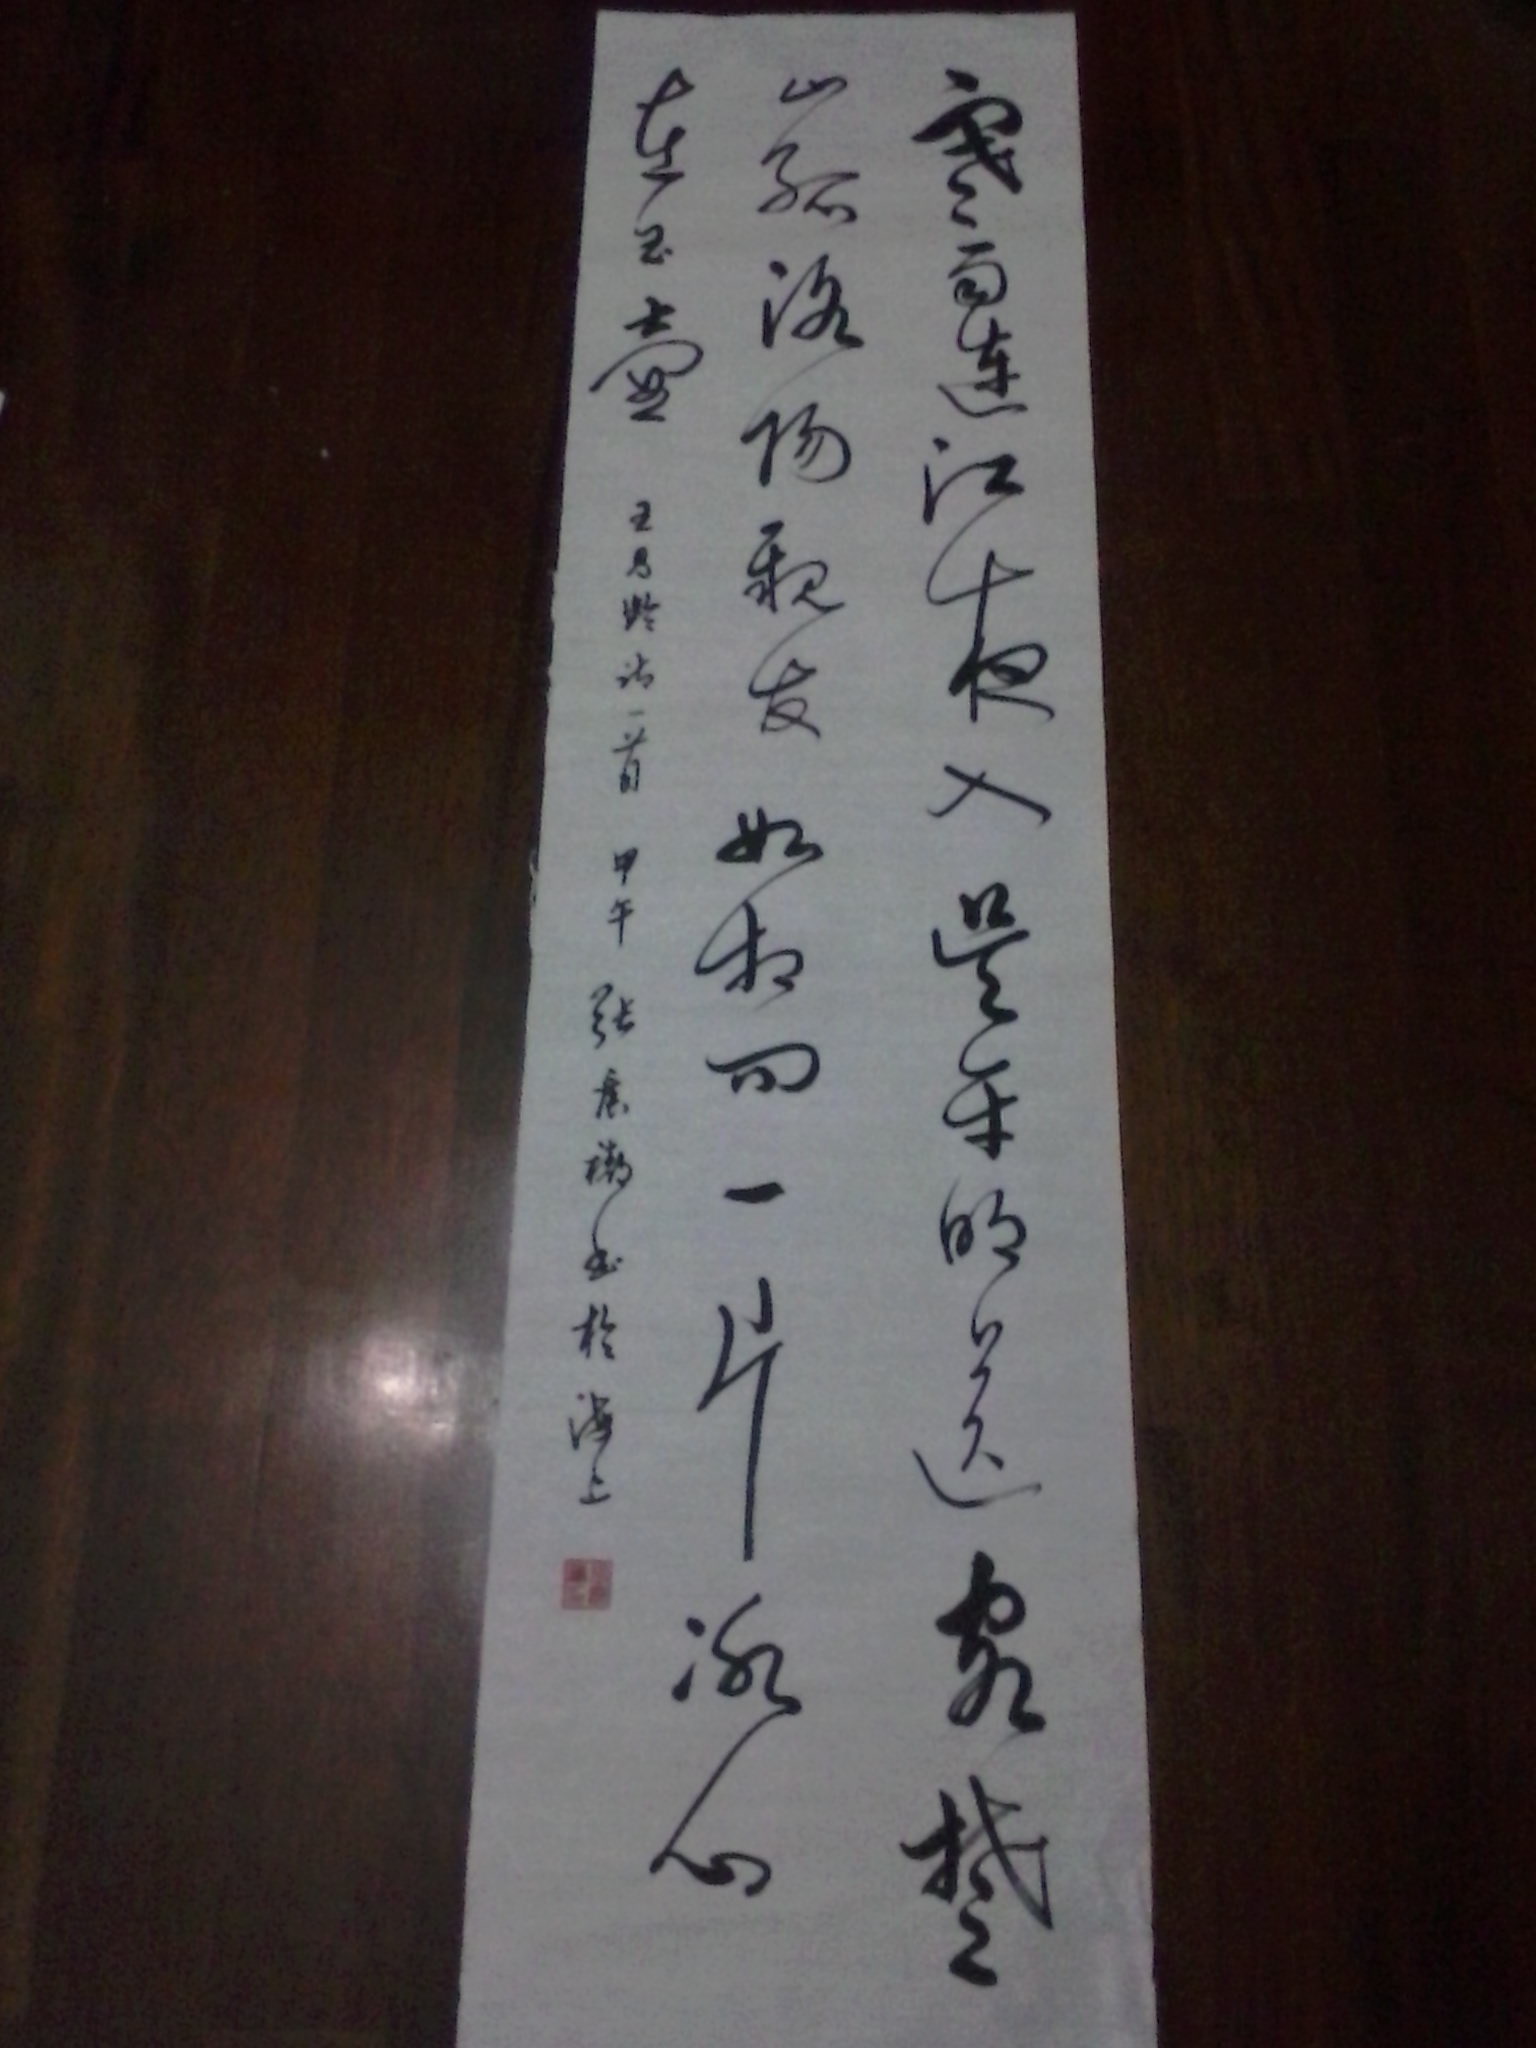 寒雨连江夜入吴平明送客楚
山孤洛阳亲友如相问一片冰心
在玉壶 王昌龄诗一首 甲午 张 书于海上